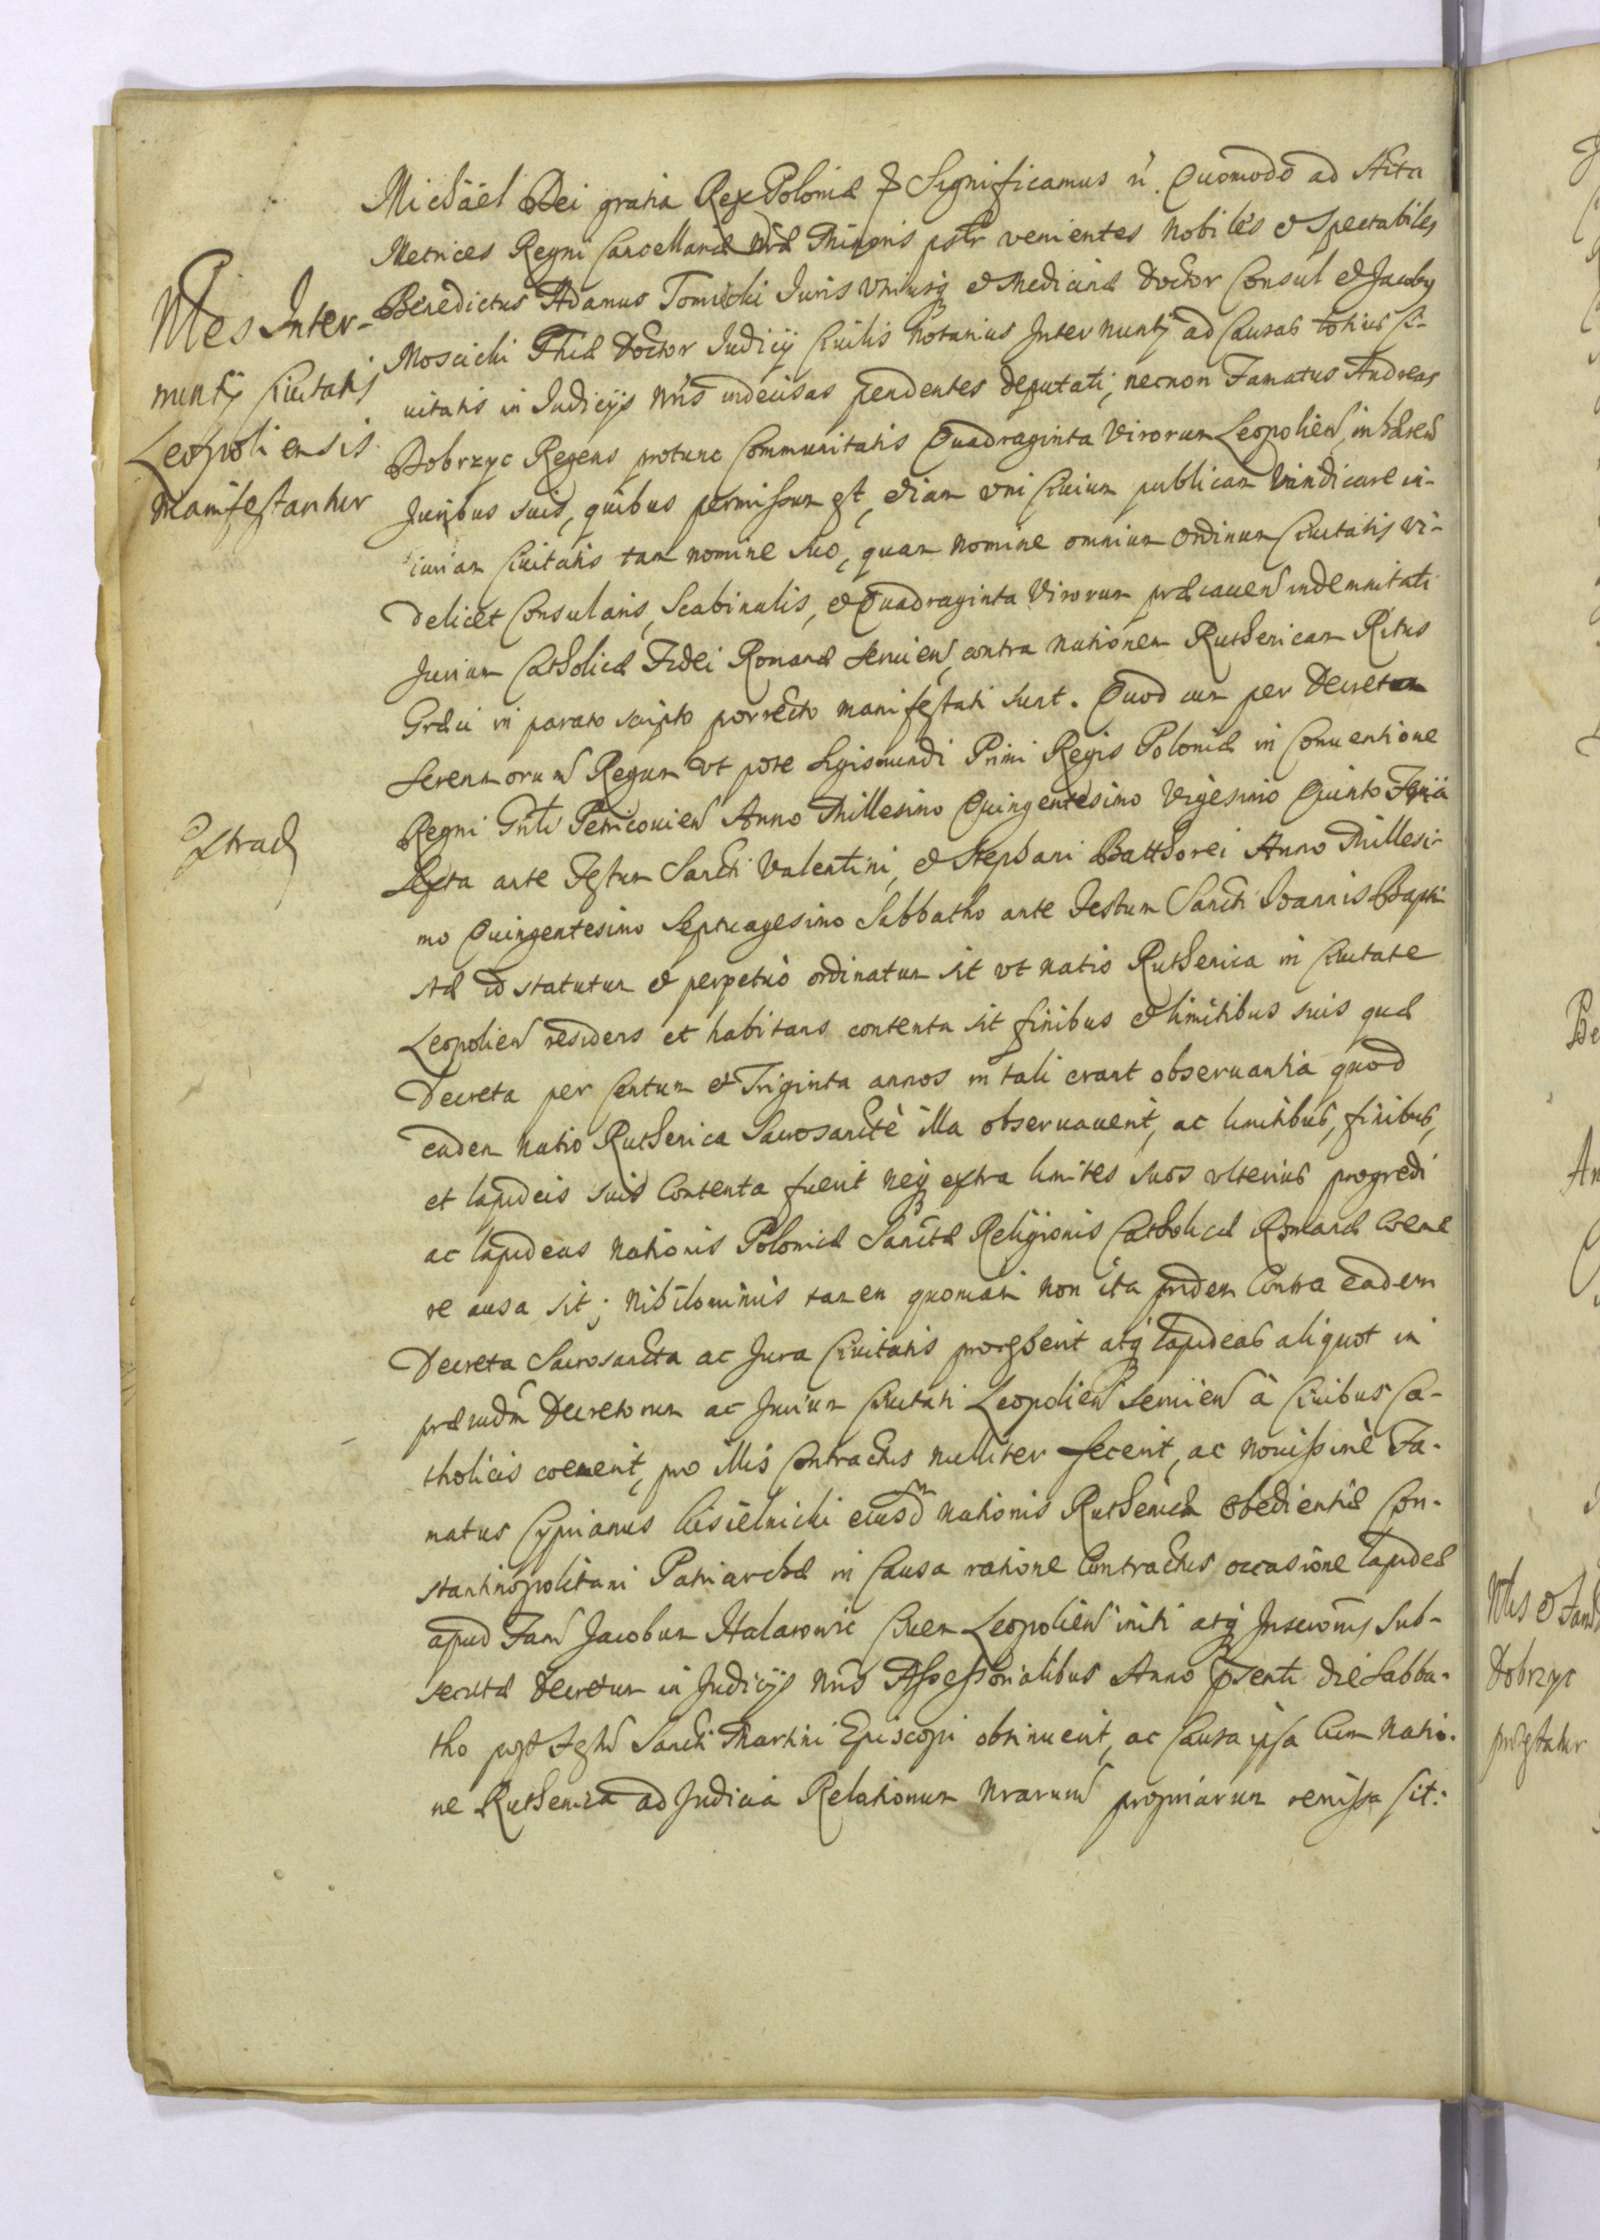 Michäel Dei gratia Rex Poloniæ & Significamus n̄. Quomodo ad Acta
Metrices Regni Cancellariæ nr̄æ Minoris pr̄ster venientes Nobiles & Spectabiles
Benedictus Adamus Tomicki Iuris Vriusq3 & Medicinæ Doctor Consul & Jacobus
Moscicki Phiæ Doctor Iudicÿ Ciuilis Notarius Internuntÿ ad Causas totius Ci-
uitatis in Iudicÿs nr̄is indecisas pendentes deputati; necnon Famatus Andreas
Dobrzyc Regens protunc Communitatis Quadraginta Virorum Leopolien̄, inhæren̄
Juribus suis, quibus permissum est, etiam vni Ciuium publicam vindicare in-
iuriam Ciuitatis tam nomine suo, quam nomine omnium Ordinum Ciuitatis vi-
delicet Consularis, Scabinalis, & Quadraginta Virorum præcauen̄ indemnitati
Jurium Catholicæ Fidei Romanæ seruien̄, contra nationem Ruthenicam Ritus
Græci in parato scripto porrecto manifestati sunt. Quod cum per Decretum
Serenmorum̄ Regum vt pote Sigismundi Primi Regis Poloniæ in Conuentione
Regni Gnl̄i Petricouien̄ Anno Millesimo Quingentesimo Vigesimo Quinto Feria
Sexta ante Festum Sancti Valentini, & Stephani Batthorei Anno Millesi-
mo Quingentesimo Septuagesimo Sabbatho ante Festum Sancti Ioannis Bapti-
stæ id statutum & perpetuò ordinatum sit vt natio Ruthenica in Ciuitate
Leopolien̄ residens et habitans contenta sit finibus & limitibus suis quæ
Decreta per Centum & Triginta annos in tali erant obseruantia quod
eadem natio Ruthenica Sacrosanctè illa obseruauerit, ac limitibus, finibus,
et lapideis suis Contenta fuerit neq3 extra limites suos vlterius progredi
ac lapideas Nationis Polonicæ Sanctæ Religionis Catholicæ Romanæ coeme
re ausa sit; nihilominus tamen quoniam non ita pridem Contra eadem
Decreta Sacrosancta ac Jura Ciuitatis proruperit atq3 lapideas aliquot in
præiudm̄ Decretorum ac Jurium Ciuitati Leopolien̄ seruien̄ à Ciuibus Ca-
tholicis coemerit, pro illis Contractus nulliter fecerit, ac nouissimè Fa-
matus Cyprianus Kisielnicki eiusdm̄ nationis Ruthenicæ Obedientiæ Con-
stantinopolitani Patriarchæ in Causa ratione Contractus occasione lapideæ
apud Fam̄ Jacobum Halarowic Ciuem Leopolien̄ initi atq3 Sub-
secutæ Decretum in Judicÿs nr̄is Assessorialibus Anno pr̄senti die Sabba-
tho post Festm̄ Sancti Martini Episcopi obtinuerit, ac Causa ipsa Cum Natio-
ne Ruthenica ad Judicia Relationum Nrarum̄ propriarum remissa sit:
Nles Inter-
nuntÿ Ciuitatis
Leopoliensis
Manifestantur
Extrad
Nlis & Fam
Dobrzyc